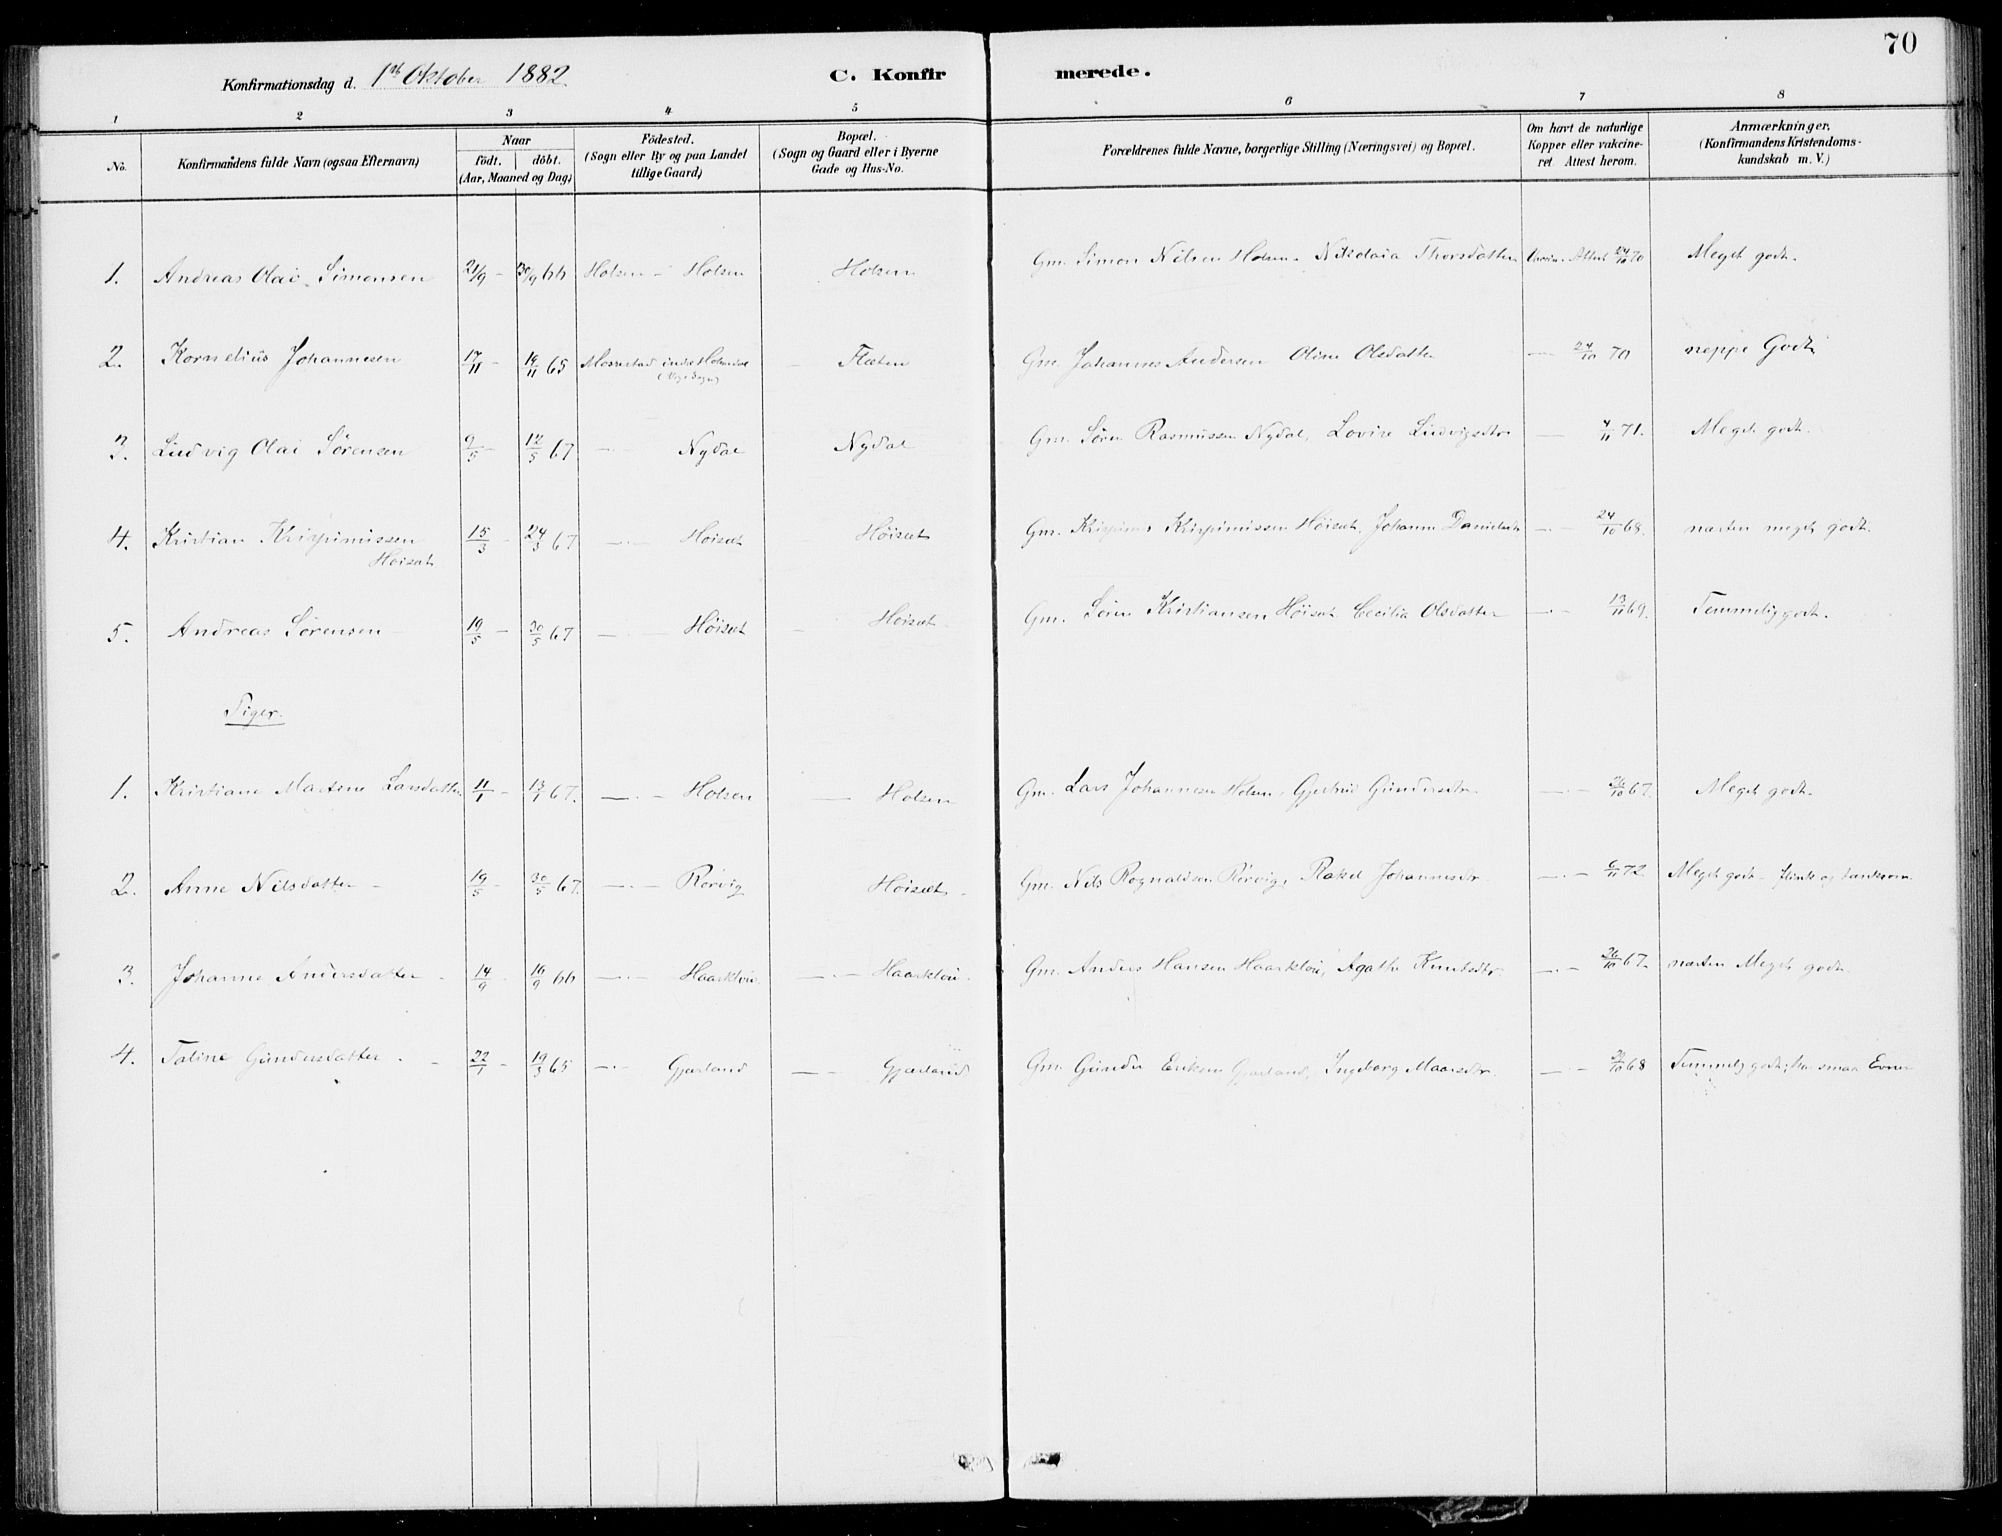 70
Konfirmationsdag d. 1ste Oktober 1882
C. Konfirmerede.
1 2 3 4 5 6 7 8
No. Konfirmandens fulde Navn (ogsaa Efternavn) Naar födt. döbt. (Aar, Maaned og Dag) Födested. (Sogn eller By og paa Landet tillige Gaard) Bopæl. (Sogn og Gaard eller i Byerne Gade og Hus-No. Forældrenes fulde Navne, borgerlige Stilling (Næringsvei) og Bopæl. Om havt de naturlige Kopper eller vakcineret. Attest herom. Anmærkninger. (Konfirmandens Kristendomskundskab m. V.)
1. Andreas Olai Simonsen 21/9 - 30/9 66 Holsen - Holsen Holsen Gm. Simon Nilsen Holsen - Nikolaia Thorsdatter Attest 24/10 70 Meget godt.
2. Kornelius Johannesen 17/11 - 19/11 65 indre Holmedal - Flæten Gm. Johannes Andersen Oline Olsdatter — 24/10 70 neppe Godt
3. Ludvig Olai Sørensen 9/5 - 12/5 67 —·— Nydal Nydal Gm. Søren Rasmussen Nydal, Lovise Ludvigsdtr — 4/11 71. Meget godt.
4. Kristian Krispinussen Høisæt 15/3 - 24/3 67 —·— Høisæt - Høisæt Gm. Krispinus Krispinussen Høisæt, Johanne Danielsdtr —·— 24/10 68. næsten meget godt.
5. Andreas Sørensen 19/5 - 30/5 67 —·— Høisæt - Høisæt Gm. Søren Kristiansen Høisæt Cecilia Olsdatter —·— 13/11 69. Temmelig godt.
Piger.
1. Kristiane Martine Larsdatter 11/1 - 13/1 67. —·— Holsen — Holsen Gm. Lars Johannesen Holsen, Gjertrud Gundersdtr. —·— 26/10 67. Meget godt.
2. Anne Nilsdatter - 19/5 - 30/5 67. —·— Rørvig Høisæt - Gm. Nils Rognaldsen Rørvig, Rakel Johannesdtr. —·— 6/11 72 Meget godt - flink og tænksom
3. Johanne Andersdatter - 14/9 - 16/9 66 —·— Haarklou —·— Haarklou. Gm. Anders Hansen Haarklou, Agathe Knutsdtr. —·— 26/10 67. næsten Meget godt
4. Taline Gundersdatter. - 22/1 - 19/3 65 —·— Gjærland —— Gjærland Gm. Gunder Eriksen Gjærland, Ingeborg Maarsdtr. —·— 68 Temmelig godt; har smaa Evner